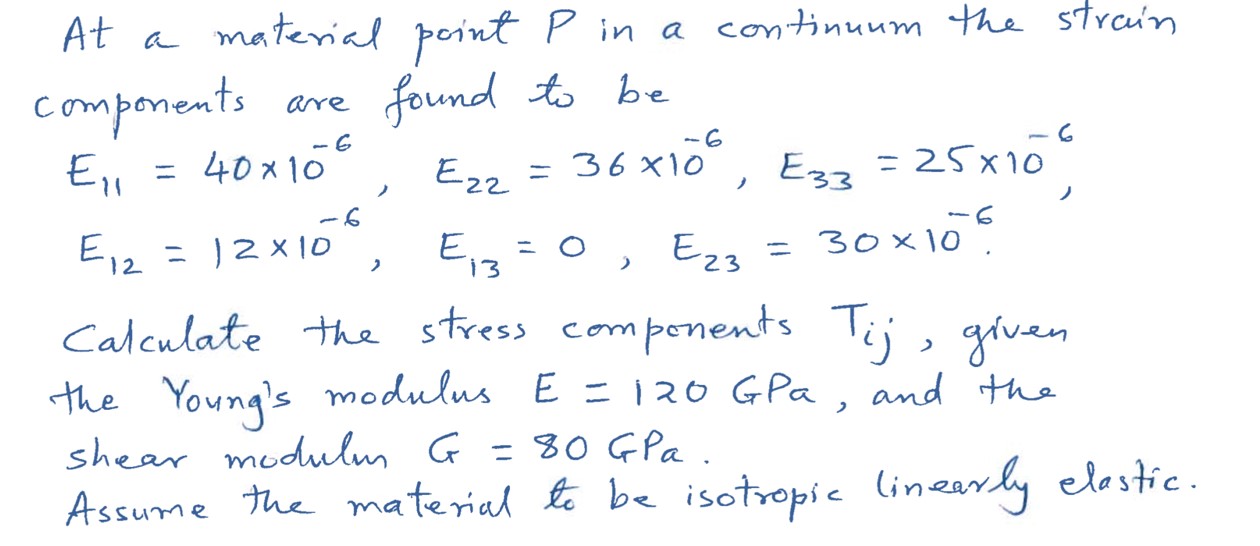 At a material point P in a continuum the strain
components are found to be
E₁₁ = 40×10⁻⁶, E₂₂ = 36×10⁻⁶, E₃₃ = 25×10⁻⁶,
E₁₂ = 12×10⁻⁶, E₁₃ = 0, E₂₃ = 30×10⁻⁶.
Calculate the stress components Tij, given
the Young's modulus E = 120 GPa, and the
shear modulus G = 80 GPa.
Assume the material to be isotropic linearly elastic.